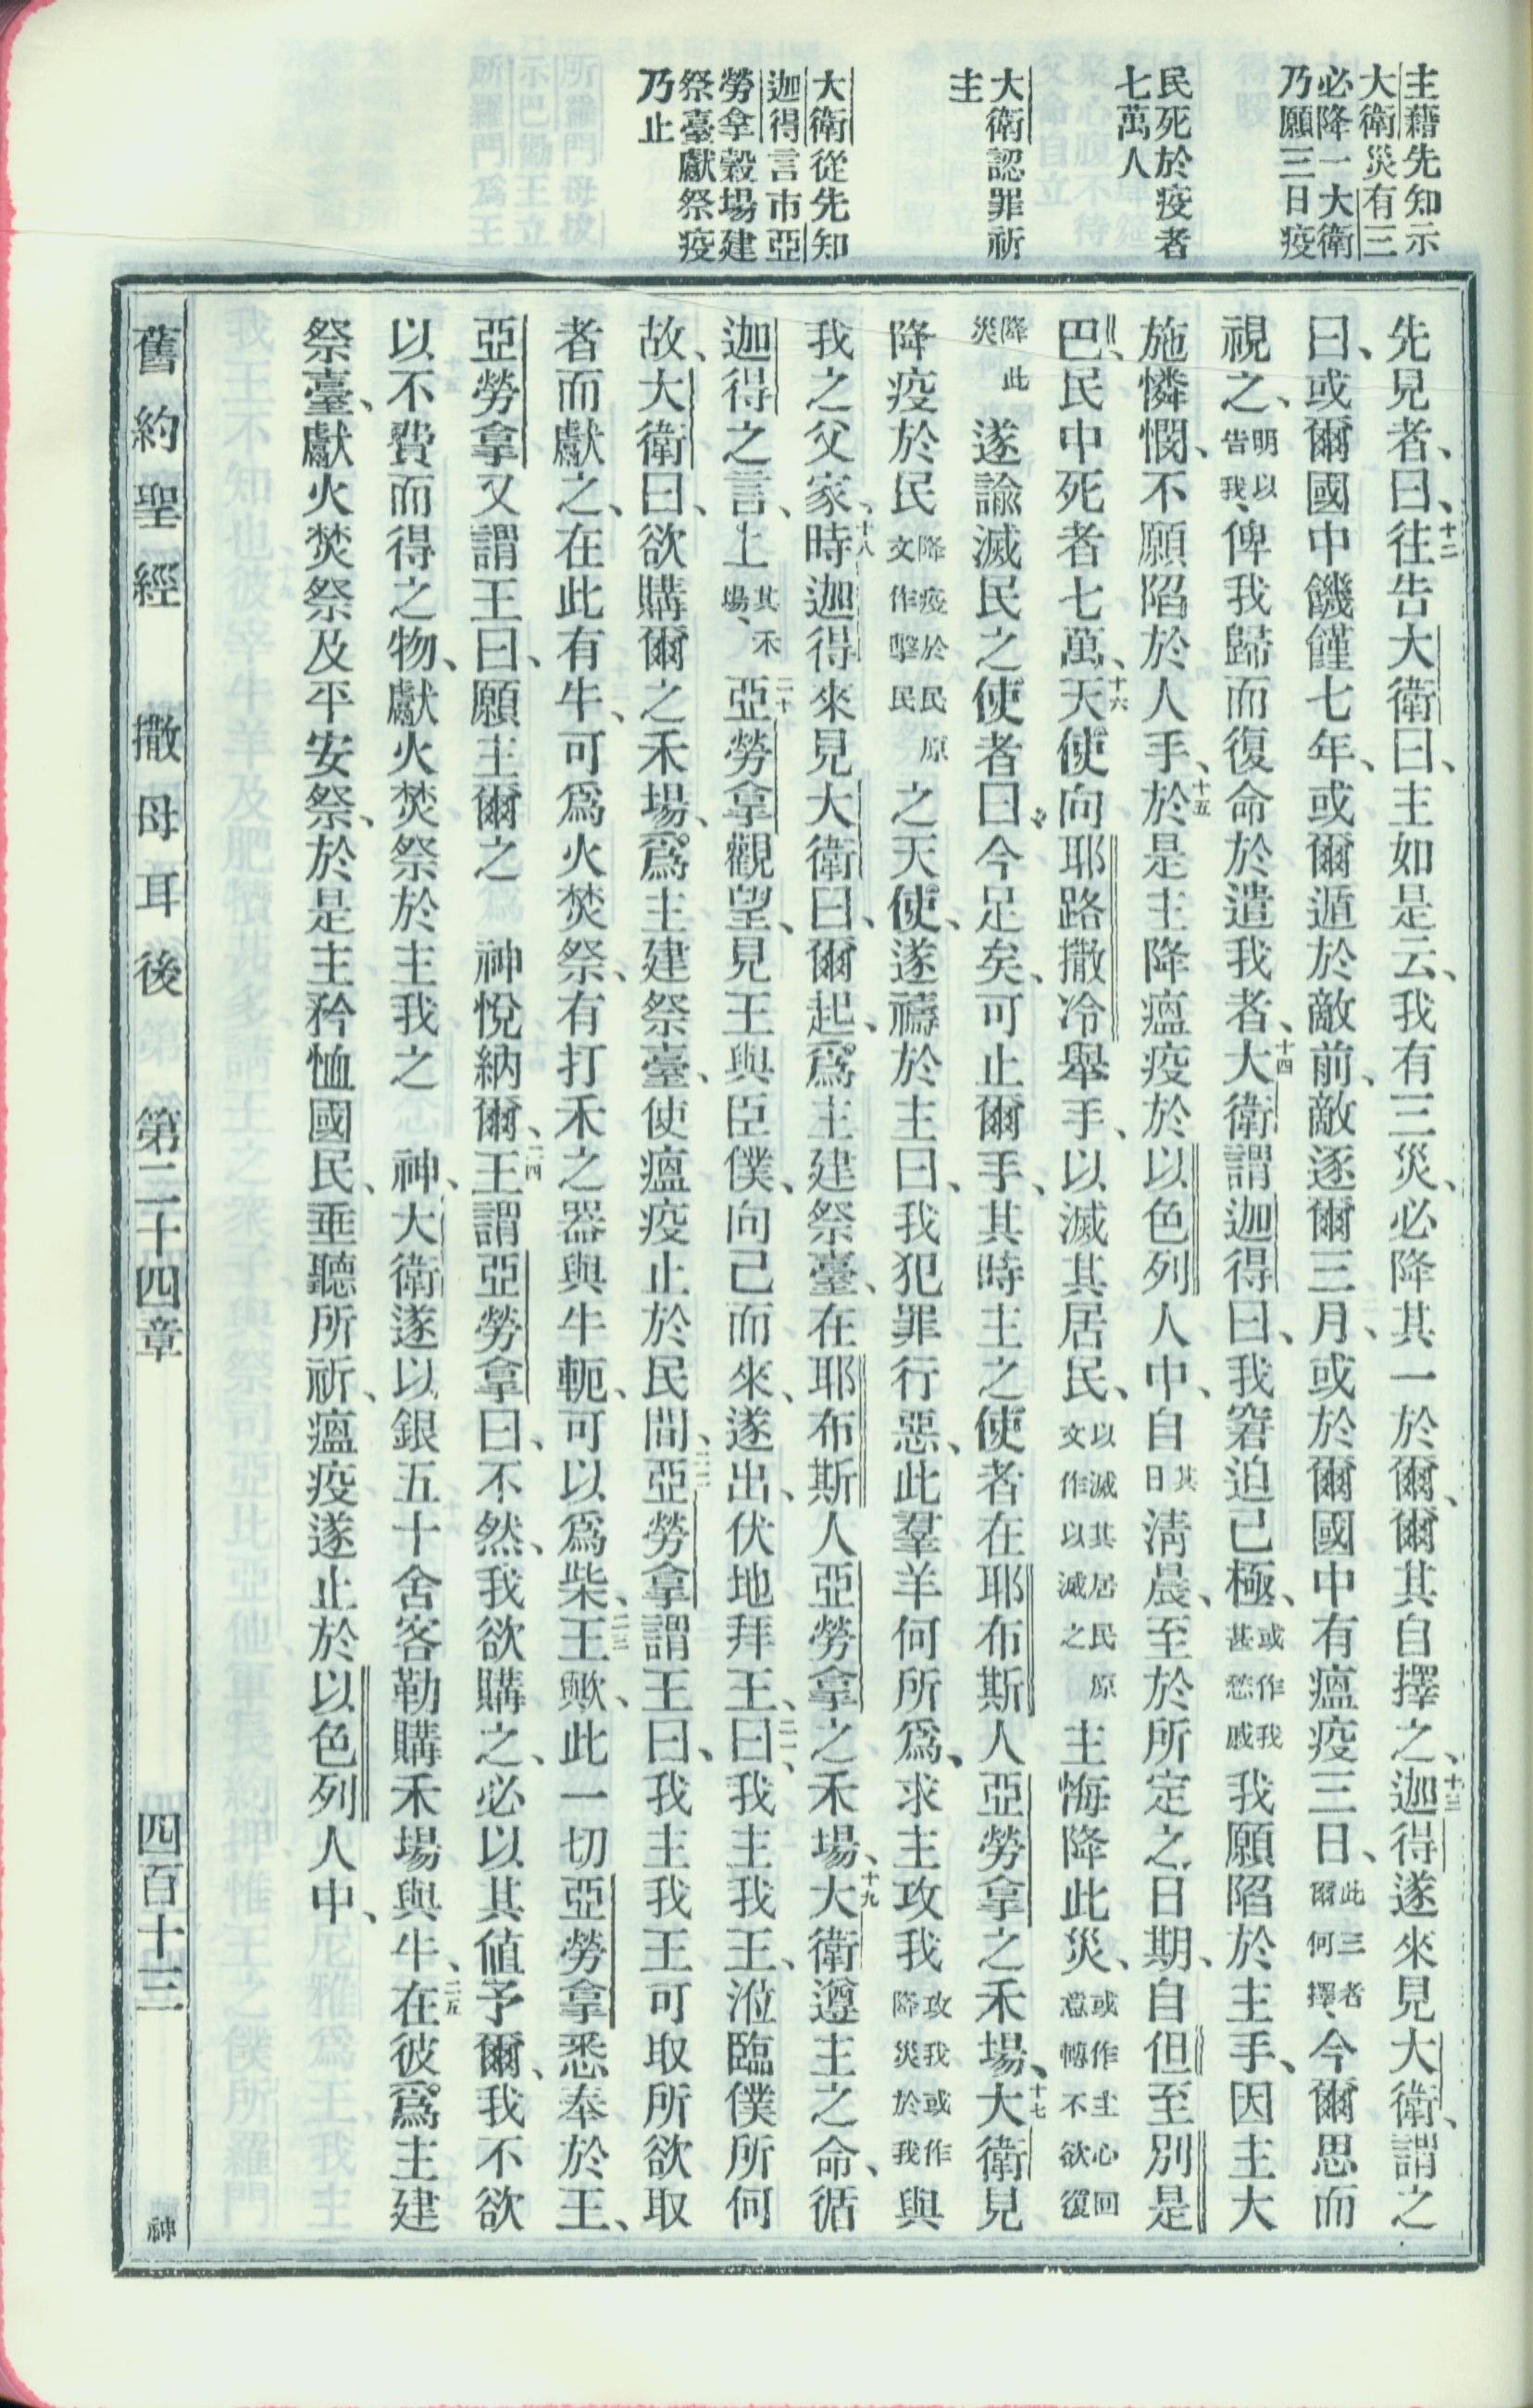 主藉先知示
大衛災有三
必降一大衛
乃願三日疫
民死於疫者
七萬人
大衛認罪祈
主
大衛從先知
迦得言市亞
勞拿穀場建
祭臺獻祭疫
乃止
先見者、曰、十二往告大衛曰、主如是云、我有三災、必降其一於爾、爾其自擇之、十三迦得遂來見大衛、謂之
曰、或爾國中饑饉七年、或爾遁於敵前、敵逐爾三月、或於爾國中有瘟疫三日、此三者爾何擇、今爾思而
視之、明以告我、俾我歸而復命於遣我者、十四大衛謂迦得曰、我窘迫已極、或作我甚愁戚我願陷於主手、因主大
施憐憫、不願陷於人手、十五於是主降瘟疫於以色列人中、自其日淸晨、至於所定之日期、自但至別是
巴、民中死者七萬、十六天使向耶路撒冷舉手、以滅其居民、以滅其居民原文作以滅之主悔降此災、或作主心回意轉不欲復
降此災遂諭滅民之使者曰、今足矣、可止爾手、其時主之使者在耶布斯人亞勞拿之禾場、十七大衛見
降疫於民降疫於民原文作擊民之天使、遂禱於主曰、我犯罪行惡、此羣羊何所爲、求主攻我攻我或作降災於我與
我之父家、十八時迦得來見大衛曰、爾起、爲主建祭臺、在耶布斯人亞勞拿之禾場、十九大衛遵主之命、循
迦得之言、上其禾場、二十亞勞拿觀望、見王與臣僕、向己而來、遂出、伏地拜王、二一曰、我主我王、涖臨僕所何
故、大衛曰、欲購爾之禾場、爲主建祭臺、使瘟疫止於民間、二二亞勞拿謂王曰、我主我王可取所欲取
者而獻之、在此有牛、可爲火焚祭、有打禾之器與牛軛、可以爲柴、二三王歟、此一切亞勞拿悉奉於王、
亞勞拿又謂王曰、願主爾之　神悅納爾、二四王謂亞勞拿曰、不然、我欲購之、必以其値予爾、我不欲
以不費而得之物、獻火焚祭於主我之　神、大衛遂以銀五十舍客勒購禾場與牛、二五在彼爲主建
祭臺、獻火焚祭及平安祭、於是主矜恤國民、垂聽所祈、瘟疫遂止於以色列人中、
舊約聖經　撒母耳後　第二十四章　四百十三　神